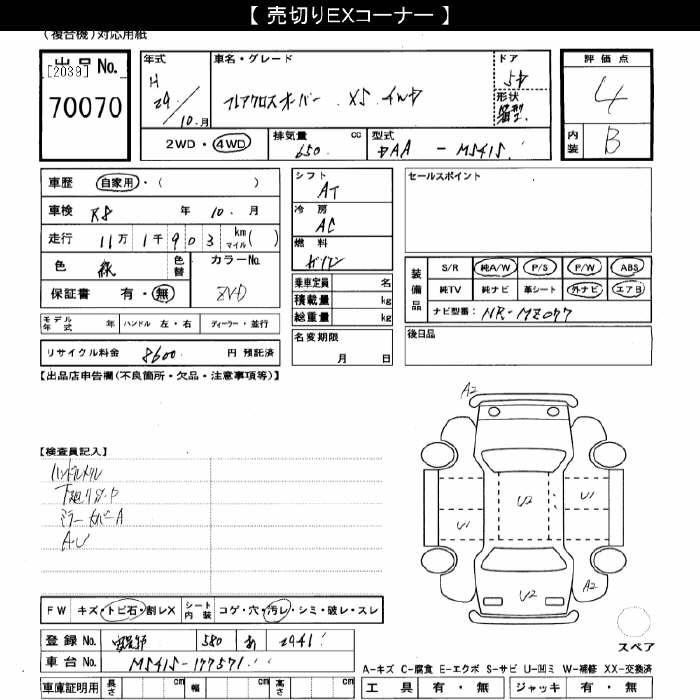 【 売切りEXコーナー 】
(複合機)対応用紙
出品 No.
[2039]
70070
年式
H
29
10.月
車名・グレード
フレアクロスオーバー XS 4WD
ドア
5ド
形状
箱型
2WD・4WD
排気量 cc
650
型式
DAA - MS41S
評価点
4
内装
B
車歴 自家用・( )
車検 R8 年 10. 月
走行 11万 1千 903 km マイル( )
色 緑
色替
カラーNo.
ZVD
保証書 有・無
モデル年式 年 ハンドル 左・右 ディーラー・並行
リサイクル料金 8600 円 預託済
シフト
AT
冷房
AC
燃料
ガソリン
乗車定員 名
積載量 kg
総重量 kg
名変期限
月 日
セールスポイント
装備品
S/R 純A/W P/S P/W ABS
純TV 純ナビ 革シート 外ナビ エアB
ナビ型番: NR-MZ077
後日品
【出品店申告欄(不良箇所・欠品・注意事項等)】
【検査員記入】
ミラーカバーA
A・U
A2
U2
U1
U1
U2
A2
スペア
FW キズ・トビ石・割レX
シート内装 コゲ・穴・汚レ・シミ・破レ・スレ
登録 No. 580 あ 2941
車台 No. MS41S-177571
車庫証明用 長さ cm 幅 cm 高さ cm
A-キズ C-腐食 E-エクボ S-サビ U-凹ミ W-補修 XX-交換済
工具 有・無 ジャッキ 有・無